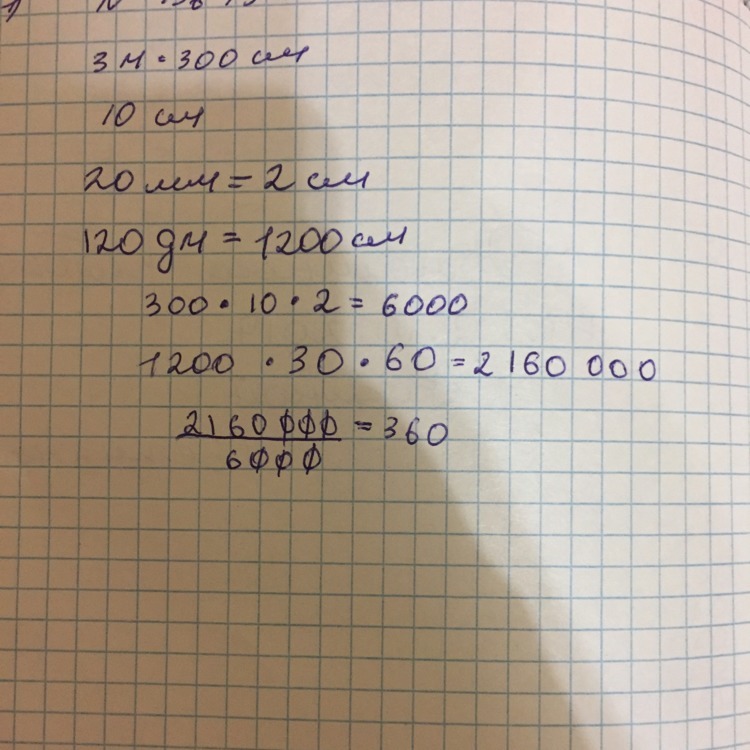 3 м · 300 см
10 см
20 мм = 2 см
120 дм = 1200 см
300 · 10 · 2 = 6000
1200 · 30 · 60 = 2160 000
2160 000 = 360
6000